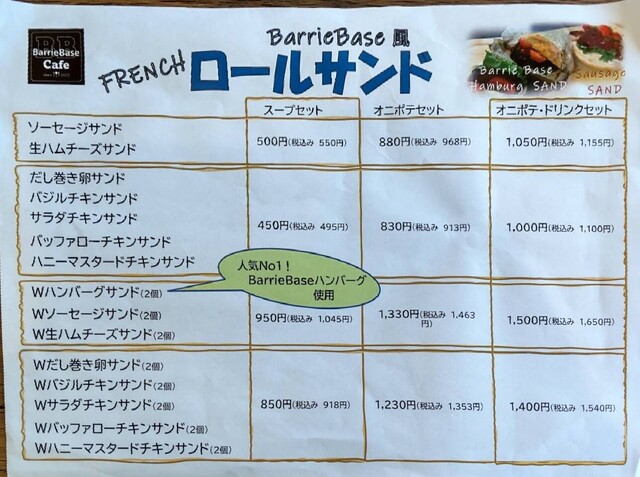 BB
BarrieBase
Cafe
BarrieBase 風
FRENCH ロールサンド
Barrie Base
Hamburg SAND
Sausage
SAND
スープセット オニポテセット オニポテ・ドリンクセット
ソーセージサンド
生ハムチーズサンド
500円(税込み 550円) 880円(税込み 968円) 1,050円(税込み 1,155円)
だし巻き卵サンド
バジルチキンサンド
サラダチキンサンド
バッファローチキンサンド
ハニーマスタードチキンサンド
450円(税込み 495円) 830円(税込み 913円) 1,000円(税込み 1,100円)
人気No1!
BarrieBaseハンバーグ
使用
Wハンバーグサンド(2個)
Wソーセージサンド(2個)
W生ハムチーズサンド(2個)
950円(税込み 1,045円) 1,330円(税込み 1,463
円) 1,500円(税込み 1,650円)
Wだし巻き卵サンド(2個)
Wバジルチキンサンド(2個)
Wサラダチキンサンド(2個)
Wバッファローチキンサンド(2個)
Wハニーマスタードチキンサンド(2個)
850円(税込み 918円) 1,230円(税込み 1,353円) 1,400円(税込み 1,540円)